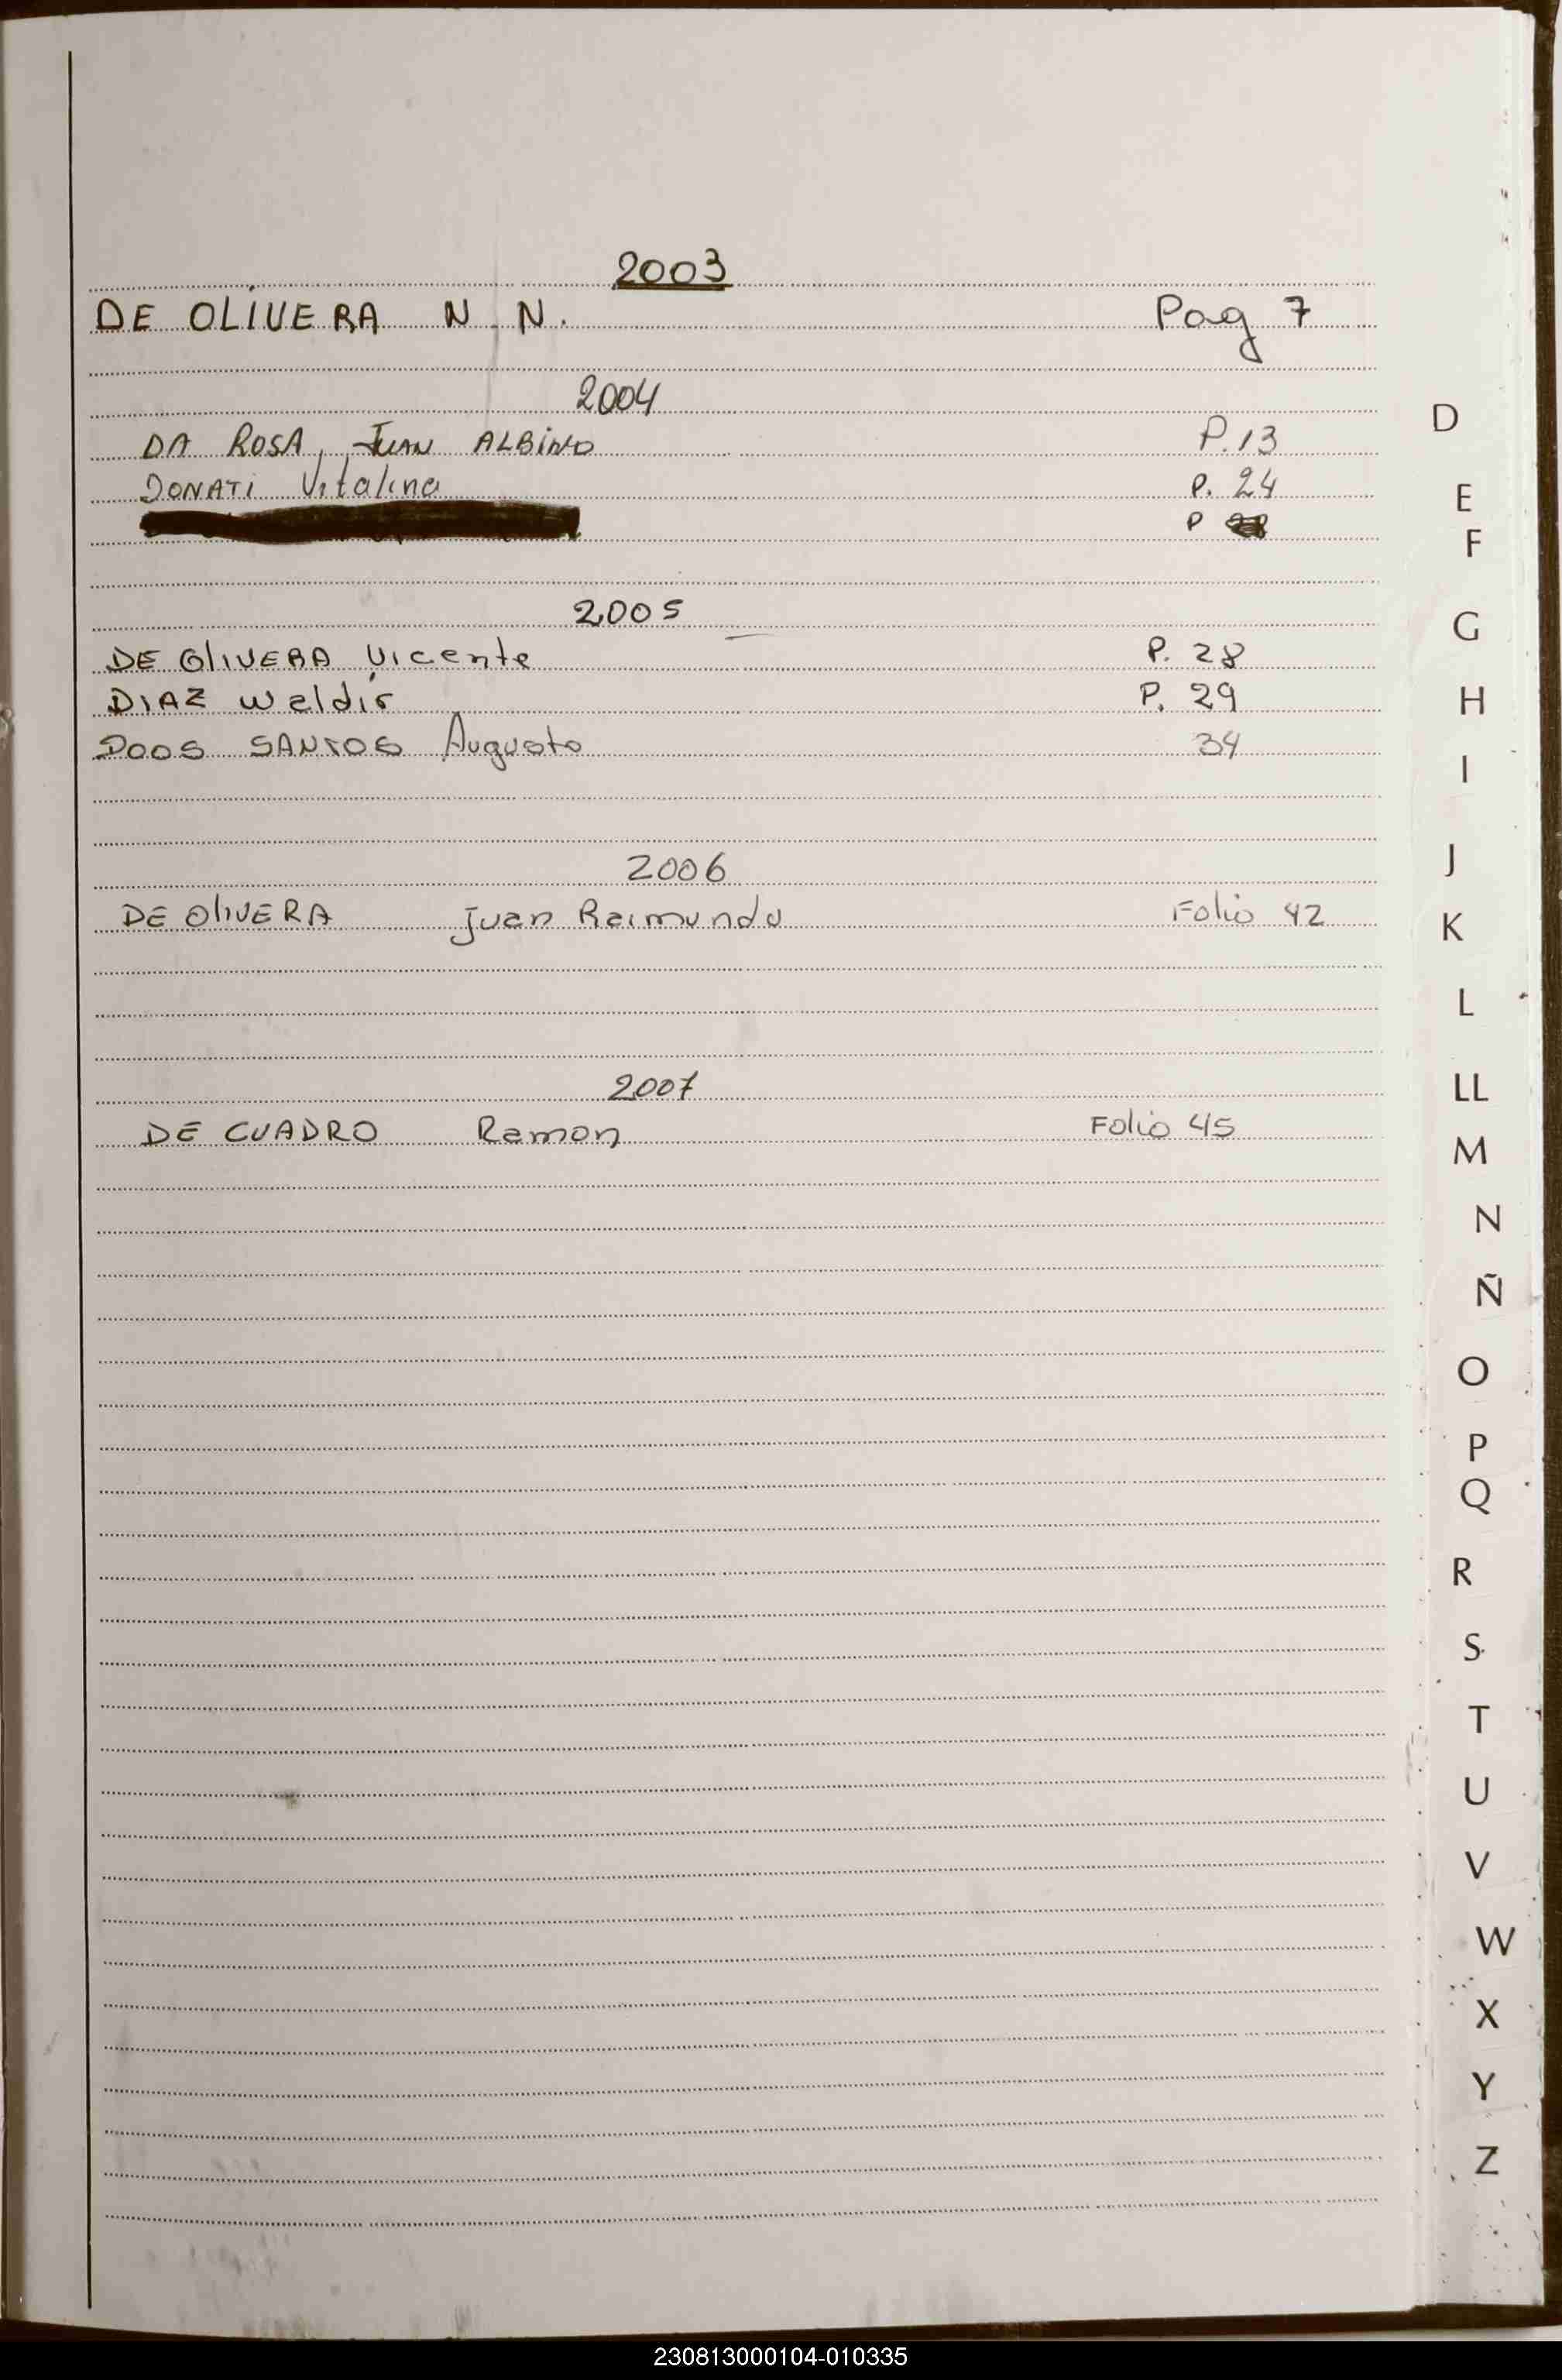 2003
DE OLIVERA N. N. Pag 7
2004
DA ROSA, JUAN ALBINO P.13
DONATI Vitalina P. 24
P
2005
DE OlIVERA Vicente P. 28
DIAZ Weldir P. 29
DOOS SANTOS Augusto 34
2006
DE OlIVERA Juan Raimundo Folio 42
2007
DE CUADRO Ramon Folio 45
D
E
F
G
H
I
J
K
L
LL
M
N
Ñ
O
P
Q
R
S
T
U
V
W
X
Y
Z
230813000104-010335